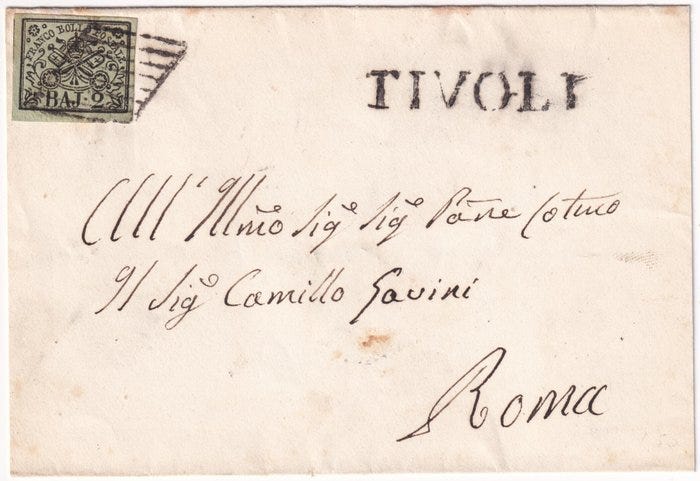 FRANCO BOLLO POSTALE
BAJ. 2
TIVOLI
All' Illmo Sigę Sigę Pãne Colmo
Il Sigę Camillo Gavini
Roma